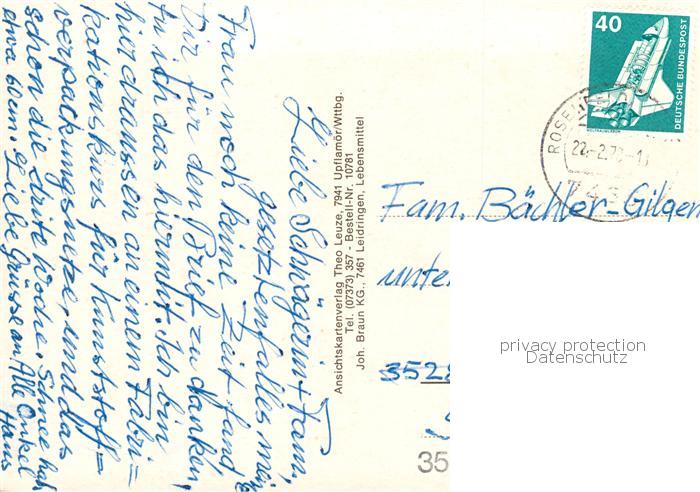 Liebe Schwägerin + Fam,
gesetztenfalls mei
Frau noch keine Zeit fand
Dir für den Brief zu danken,
tu ich das hiermit. Ich bin
hier draussen an einem Fabri=
kationskurs für Kunststoff=
verpackungsnetze, und das
schon die dritte Woche. Schnee hat
etwa 60cm. Liebe Grüsse an Alle Onkel
Hans
Ansichtskartenverlag Theo Leuze, 7941 Upflamör/Wttbg.
Tel. (07373) 357 - Bestell-Nr. 10781
Joh. Braun KG., 7461 Leidringen, Lebensmittel
40
DEUTSCHE BUNDESPOST
WELTRAUMLABOR
Fam. Bächler-Gilgen
unte
3528
privacy protection
Datenschutz
35